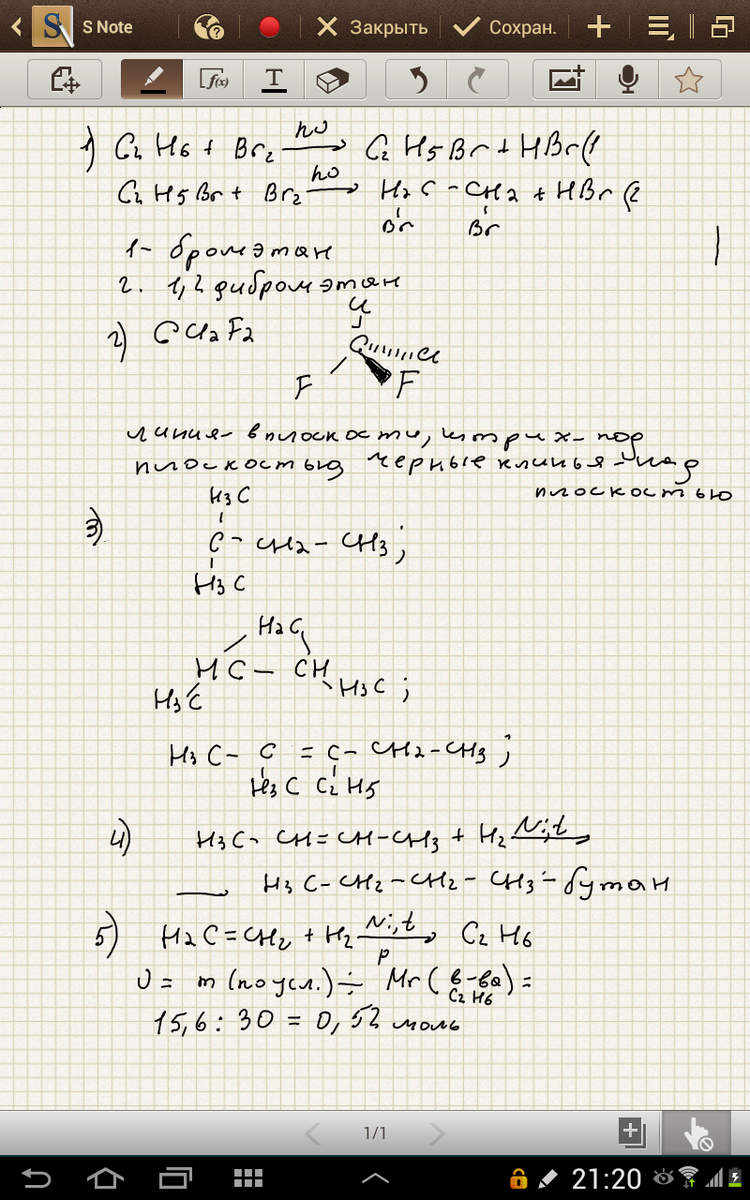 S Note
Закрыть
Сохран.
f(x)
T
1) C2H6 + Br2 hν → C2H5Br + HBr (1
C2H5Br + Br2 hν → H2C - CH2 + HBr (2
Br Br
1- бромэтан
2. 1,2 дибромэтан
2) CCl2F2
Cl
C Cl
F F
линия - в плоскости, штрих - под
плоскостью, черные клинья - над
плоскостью
3)
H3C
C - CH2 - CH3;
H3C
H2C
HC - CH
H3C H3C;
H3C - C = C - CH2 - CH3;
H3C C2H5
4) H3C - CH = CH - CH3 + H2 Ni, t →
H3C - CH2 - CH2 - CH3 - бутан
5) H2C = CH2 + H2 Ni, t → C2H6
p
ν = m (по усл.) ÷ Mr (в-ва) =
C2H6
15,6 : 30 = 0,52 моль
1/1
21:20